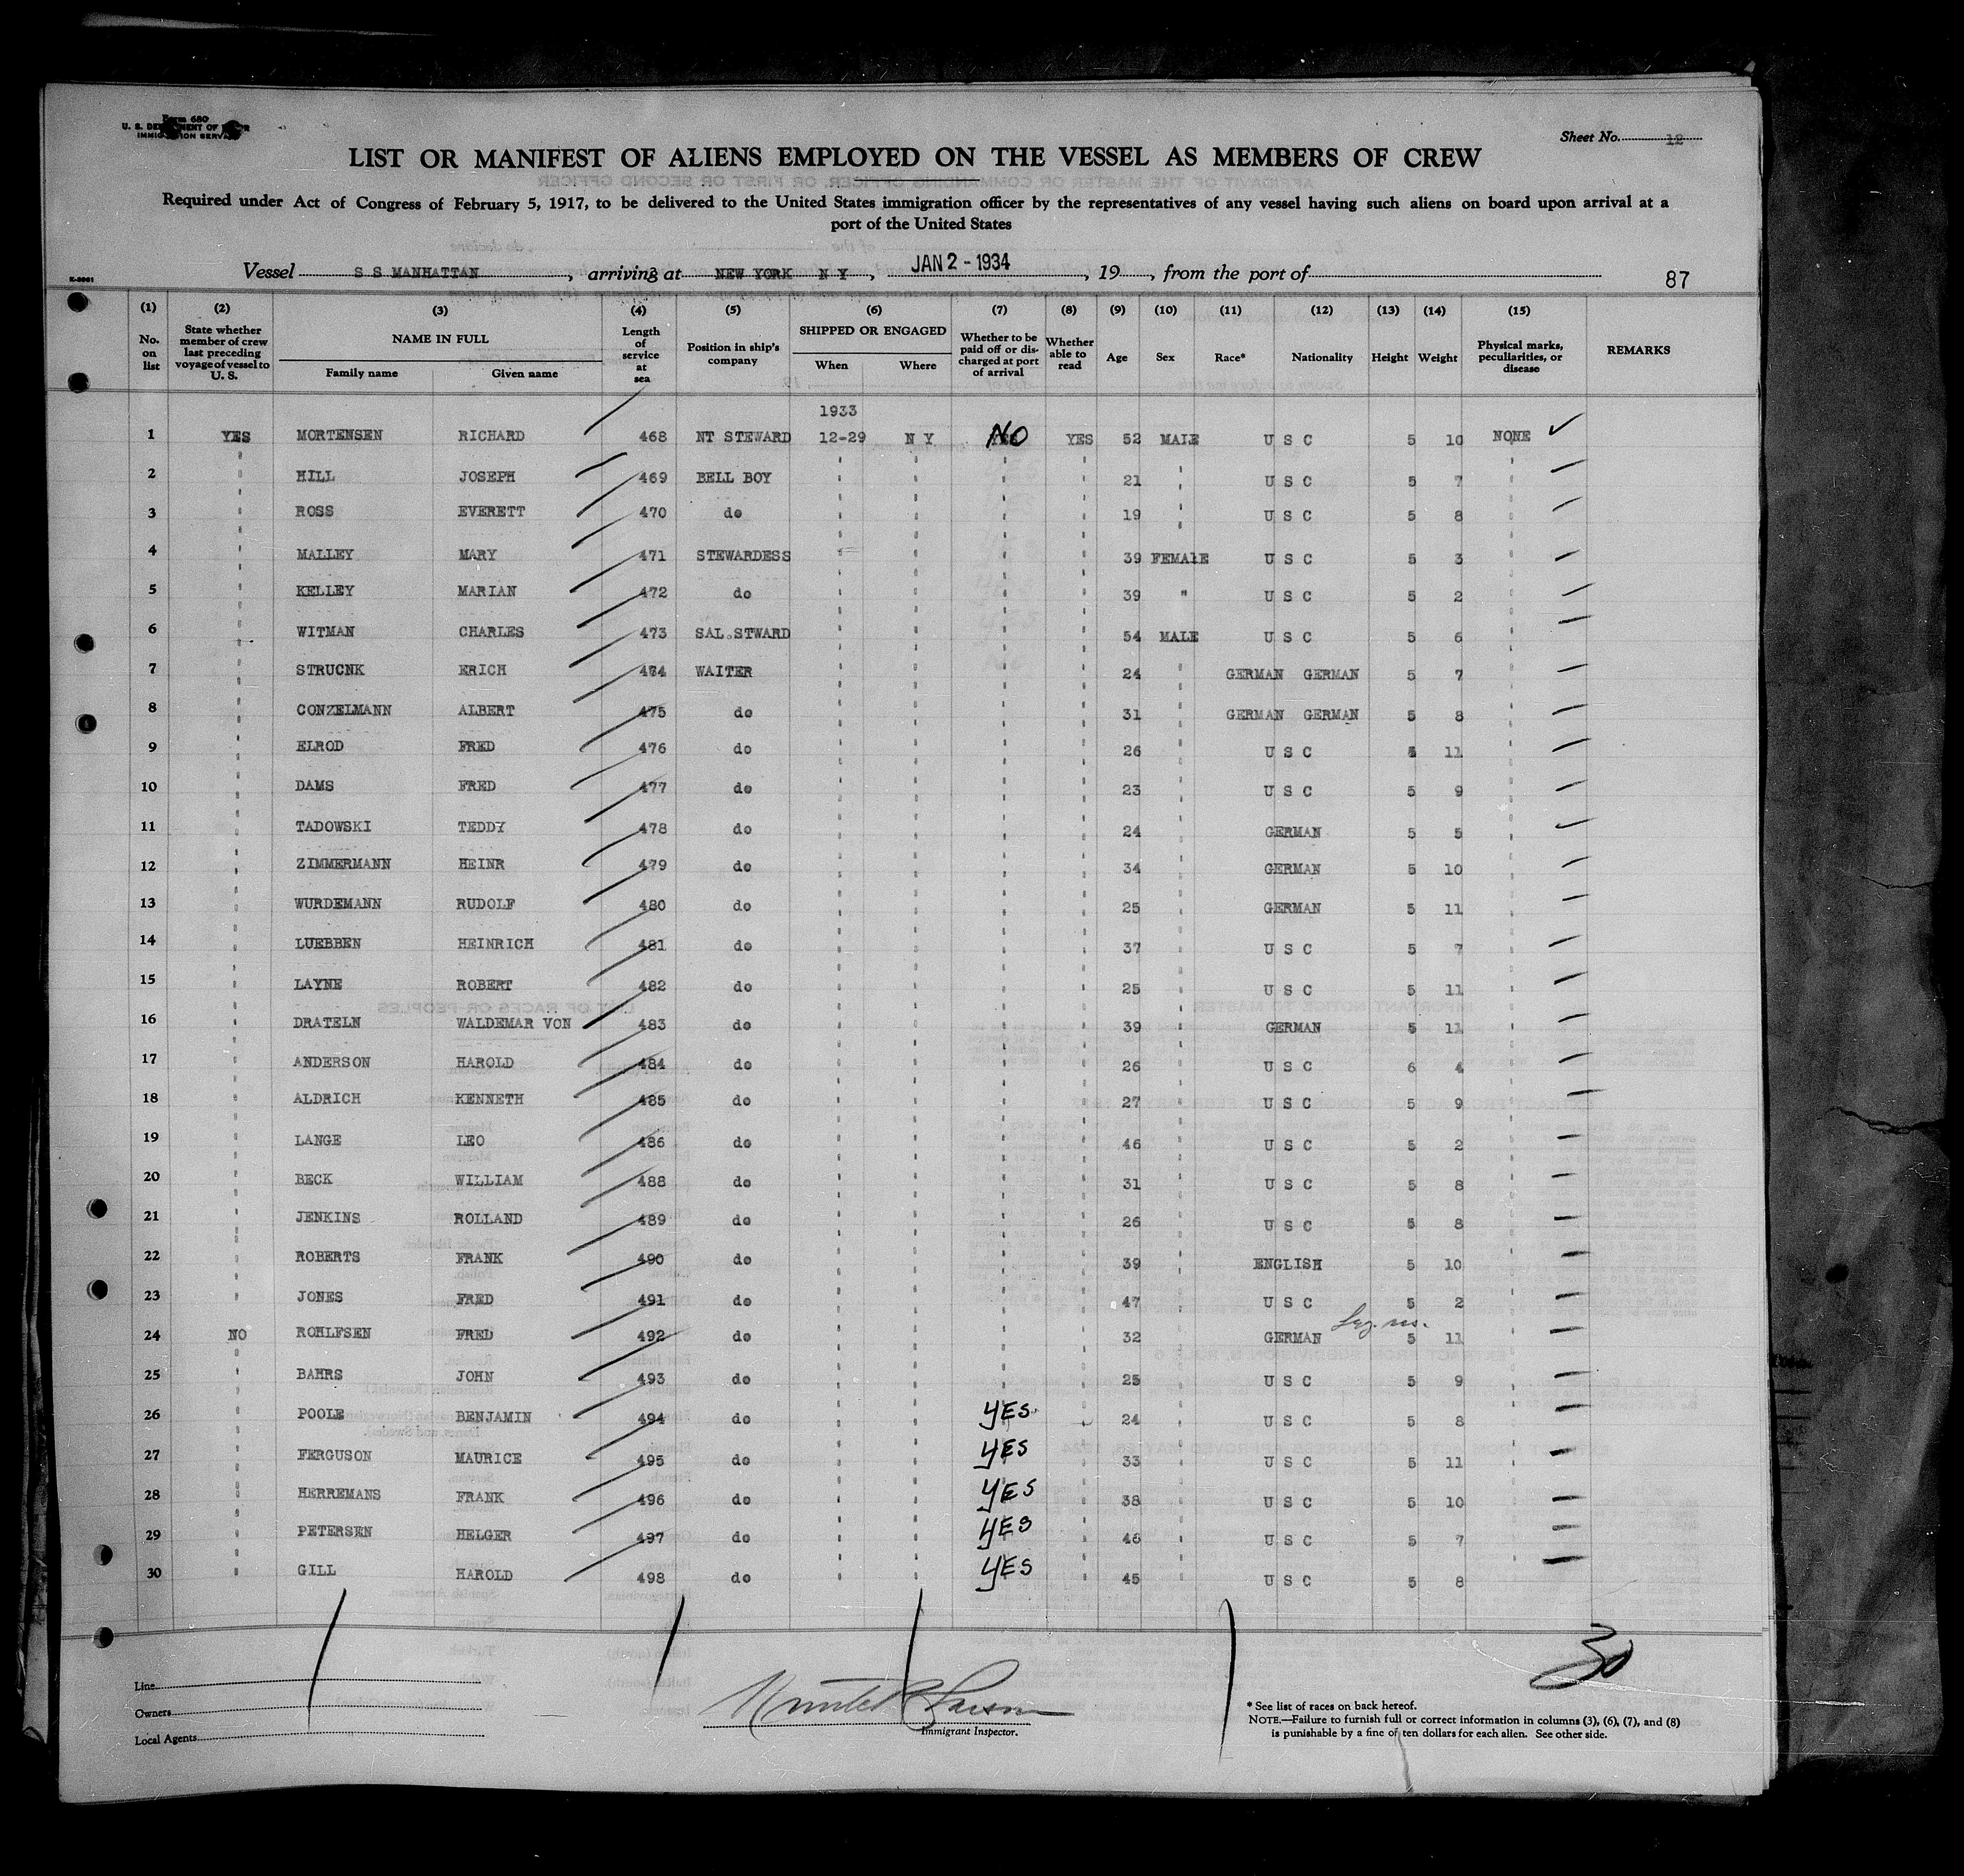 Form 680
U. S. DEPARTMENT OF LABOR
IMMIGRATION SERVICE
Sheet No. 12
LIST OR MANIFEST OF ALIENS EMPLOYED ON THE VESSEL AS MEMBERS OF CREW
Required under Act of Congress of February 5, 1917, to be delivered to the United States immigration officer by the representatives of any vessel having such aliens on board upon arrival at a
port of the United States
Vessel S S MANHATTAN, arriving at NEW YORK N Y, JAN 2 - 1934, 19, from the port of
87
(1) No. on list (2) State whether member of crew last preceding voyage of vessel to U. S. (3) NAME IN FULL Family name Given name (4) Length of service at sea (5) Position in ship's company (6) SHIPPED OR ENGAGED When Where (7) Whether to be paid off or discharged at port of arrival (8) Whether able to read (9) Age (10) Sex (11) Race* (12) Nationality (13) Height (14) Weight (15) Physical marks, peculiarities, or disease REMARKS
1933
1 YES MORTENSEN RICHARD 468 NT STEWARD 12-29 N Y NO YES 52 MALE U S C 5 10 NONE
2 " HILL JOSEPH 469 BELL BOY " " " " 21 " U S C 5 7 "
3 " ROSS EVERETT 470 do " " " " 19 " U S C 5 8 "
4 " MALLEY MARY 471 STEWARDESS " " " " 39 FEMAlE U S C 5 3 "
5 " KELLEY MARIAN 472 do " " " " 39 " U S C 5 2 "
6 " WITMAN CHARLES 473 SAL.STWARD " " " " 54 MALE U S C 5 6 "
7 " STRUCNK ERICH 474 WAITER " " " " 24 " GERMAN GERMAN 5 7 "
8 " CONZELMANN ALBERT 475 do " " " " 31 " GERMAN GERMAN 5 8 "
9 " ELROD FRED 476 do " " " " 26 " U S C 5 11 "
10 " DAMS FRED 477 do " " " " 23 " U S C 5 9 "
11 " TADOWSKI TEDDY 478 do " " " " 24 " GERMAN 5 5 "
12 " ZIMMERMANN HEINR 479 do " " " " 34 " GERMAN 5 10 "
13 " WURDEMANN RUDOLF 480 do " " " " 25 " GERMAN 5 11 "
14 " LUEBBEN HEINRICH 481 do " " " " 37 " U S C 5 7 "
15 " LAYNE ROBERT 482 do " " " " 25 " U S C 5 11 "
16 " DRATELN WALDEMAR VON 483 do " " " " 39 " GERMAN 5 11 "
17 " ANDERSON HAROLD 484 do " " " " 26 " U S C 6 4 "
18 " ALDRICH KENNETH 485 do " " " " 27 " U S C 5 9 "
19 " LANGE LEO 486 do " " " " 46 " U S C 5 2 "
20 " BECK WILLIAM 488 do " " " " 31 " U S C 5 8 "
21 " JENKINS ROLLAND 489 do " " " " 26 " U S C 5 8 "
22 " ROBERTS FRANK 490 do " " " " 39 " ENGLISH 5 10 "
23 " JONES FRED 491 do " " " " 47 " U S C 5 2 "
24 NO ROHLFSEN FRED 492 do " " " " 32 " GERMAN 5 11 "
25 " BAHRS JOHN 493 do " " " " 25 " U S C 5 9 "
26 " POOLE BENJAMIN 494 do " " YES " 24 " U S C 5 8 "
27 " FERGUSON MAURICE 495 do " " YES " 33 " U S C 5 11 "
28 " HERREMANS FRANK 496 do " " YES " 38 " U S C 5 10 "
29 " PETERSEN HELGER 497 do " " YES " 46 " U S C 5 7 "
30 " GILL HAROLD 498 do " " YES " 45 " U S C 5 8 "
30
Line
Owners
Local Agents
Immigrant Inspector.
* See list of races on back hereof.
NOTE.—Failure to furnish full or correct information in columns (3), (6), (7), and (8)
is punishable by a fine of ten dollars for each alien. See other side.